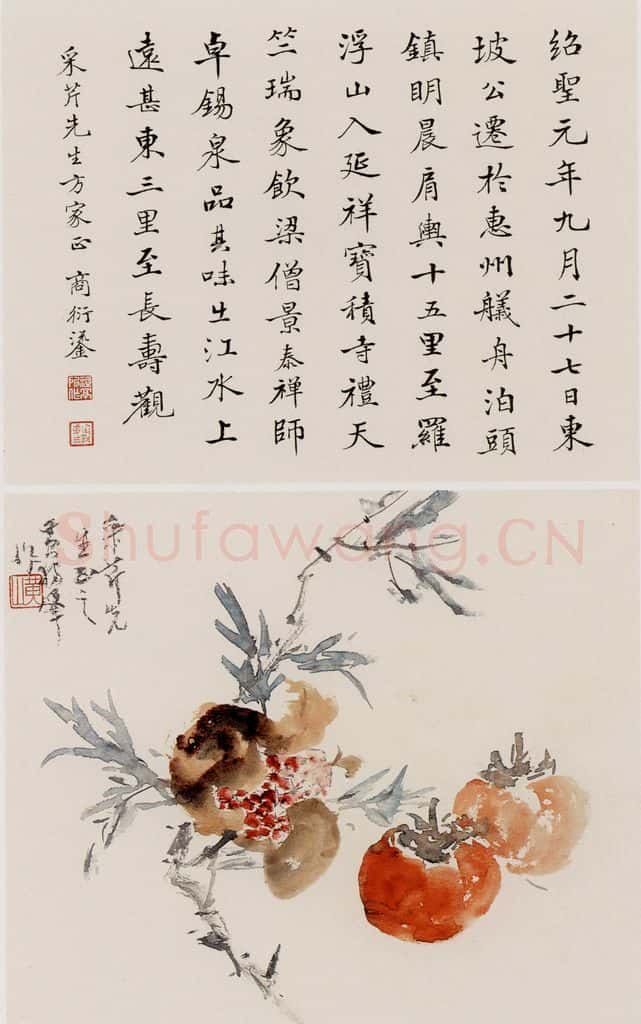 紹聖元年九月二十七日東
坡公遷於惠州艤舟泊頭
鎮明晨肩輿十五里至羅
浮山入延祥寶積寺禮天
竺瑞象飲梁僧景泰禪師
卓錫泉品其味出江水上
遠甚東三里至長壽觀
采芹先生方家正 商衍鎏
采芹先
生正之
Shufawang.CN